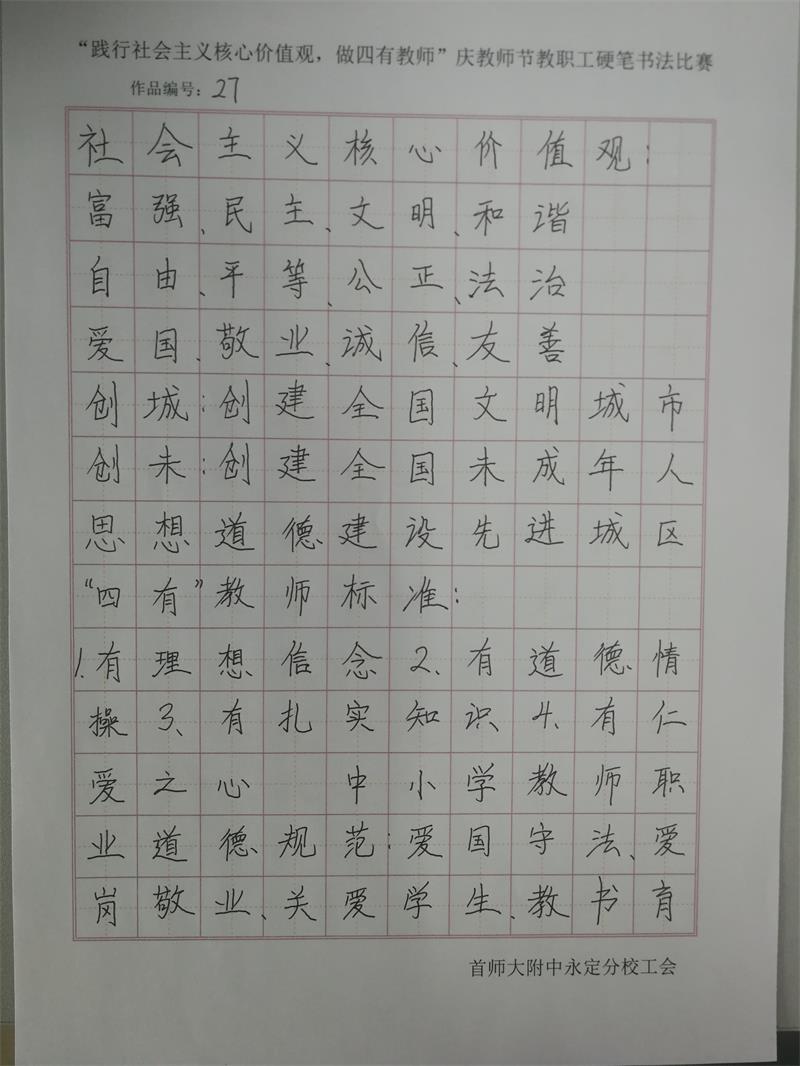 “践行社会主义核心价值观，做四有教师”庆教师节教职工硬笔书法比赛
作品编号：27
社会主义核心价值观：
富强、民主、文明、和谐
自由、平等、公正、法治
爱国、敬业、诚信、友善
创城：创建全国文明城市
创未：创建全国未成年人
思想道德建设先进城区
“四有”教师标准：
1.有理想信念2、有道德情
操3、有扎实知识4、有仁
爱之心 中小学教师职
业道德规范：爱国守法、爱
岗敬业、关爱学生、教书育
首师大附中永定分校工会